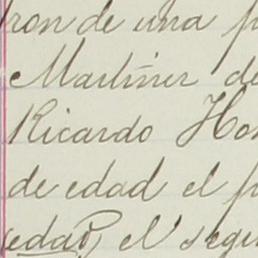 ron de una p
Martinez de
Ricardo Hon
de edad el p
(edad) el segun